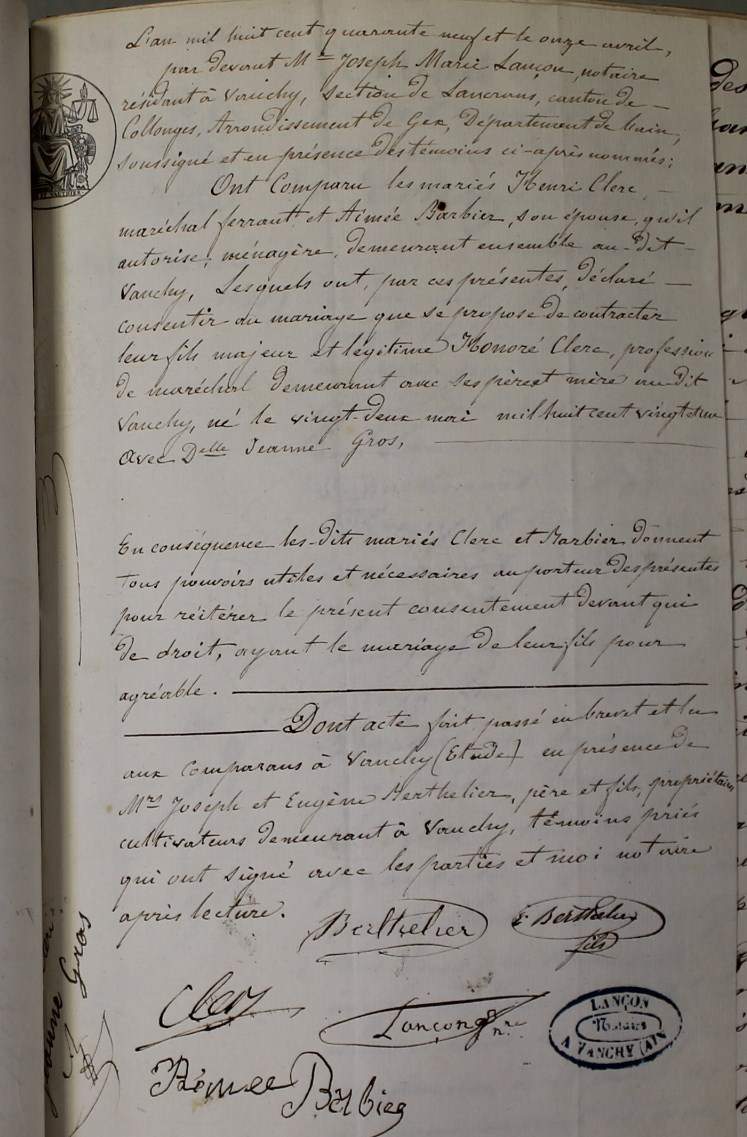 L'an mil huit cent quarante neuf et le onze avril,
par devant Mᵉ Joseph Marie Lançon, notaire
résidant à Vanchy, section de Lancrans, canton de
Collonges, Arrondissement de Gex, Département de l'ain,
soussigné et en présence des témoins ci-après nommés;
Ont Comparu les mariés Henri Clerc,
maréchal ferrant et Aimée Barbier, son épouse, qu'il
autorise, ménagère, demeurant ensemble au-dit
Vanchy, Lesquels ont, par ces présentes, déclaré
consentir au mariage que se propose de contracter
leur fils majeur et légitime Honoré Clerc, profession
de maréchal demeurant avec ses père et mère au dit
Vanchy, né le vingt-deux mai mil huit cent vingt et un
avec Delle Jeanne Gros,
En conséquence les-dits mariés Clerc et Barbier donnent
tous pouvoirs utiles et nécessaires au porteur des présentes
pour réitérer le présent consentement devant qui
de droit, ayant le mariage de leur fils pour
agréable.
Dont acte fait passé en brevet et lu
aux comparans à Vanchy (Etude) en présence de
Mrs Joseph et Eugène Berthelier, père et fils, propriétaires
cultivateurs demeurant à Vanchy, témoins priés
qui ont signé avec les parties et moi notaire
après lecture.
Berthelier E Berthelier
fils
Clerc Lançon nre
LANÇON
Notaire
A VANCHY (AIN)
Barbier
Jeanne Gros